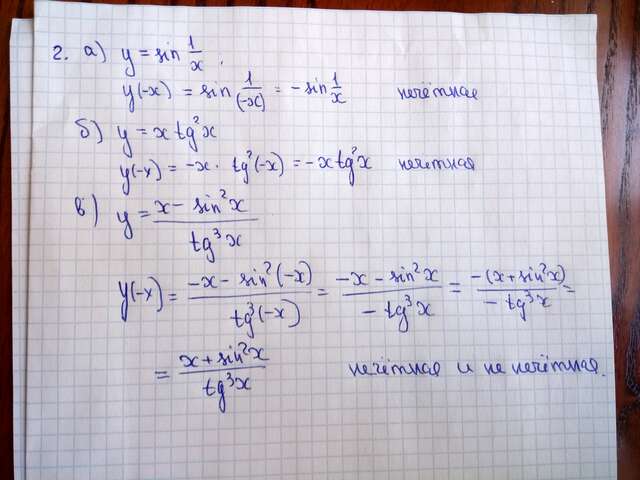 2. а) y = sin 1/x;
y(-x) = sin 1/(-x) = - sin 1/x нечётная
б) y = x tg²x
y(-x) = -x · tg²(-x) = -x tg²x нечётная
в) y = (x - sin²x)/(tg³x)
y(-x) = (-x - sin²(-x))/(tg³(-x)) = (-x - sin²x)/(- tg³x) = (-(x + sin²x))/(- tg³x) =
= (x + sin²x)/(tg³x) нечётная и не нечётная.